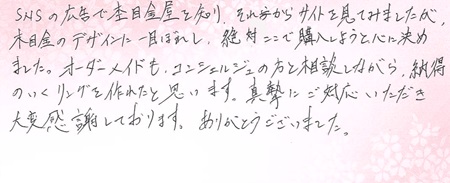 SNSの広告で杢目金屋を知り、それからサイトを見てみましたが、
木目金のデザインに一目ぼれし、絶対ここで購入しようと心に決め
ました。オーダーメイドも、コンシェルジュの方と相談しながら、納得
のいくリングを作れたと思います。真摯にご対応いただき
大変感謝しております。ありがとうございました。